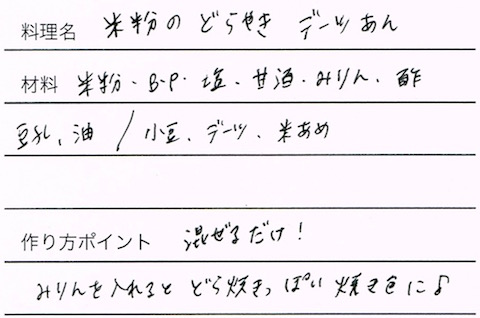 料理名 米粉の どらやき デーツあん
材料 米粉・B.P・塩・甘酒・みりん・酢
豆乳、油 / 小豆、デーツ、米あめ
作り方ポイント 混ぜるだけ!
みりんを入れると どら焼きっぽい 焼き色に♪